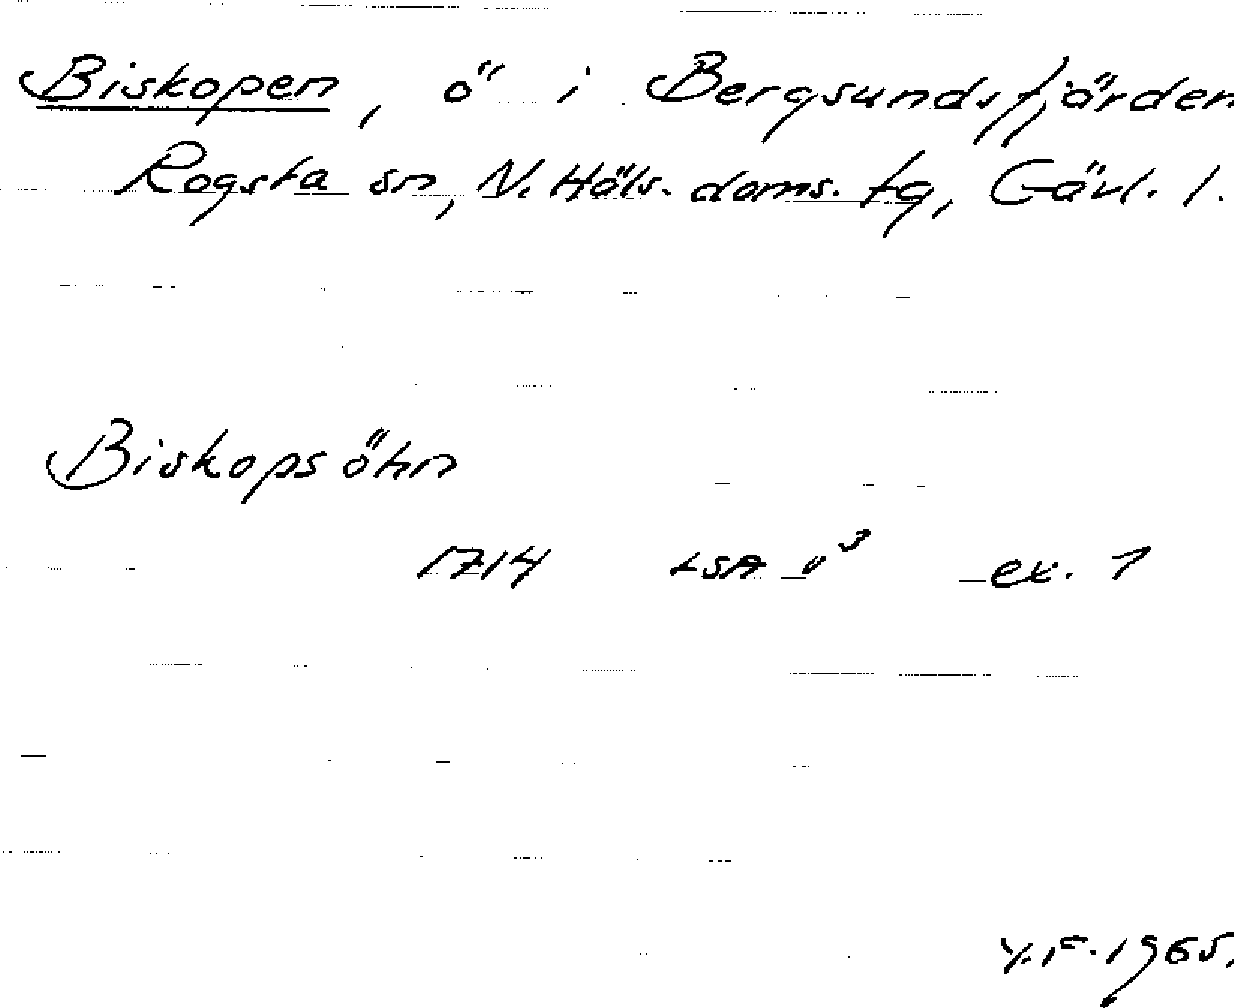 Biskopen, ö i Bergsundsfjärden
Rogsta sn, N. Häls. doms. tg, Gävl. l.
Biskopsöhn
1714 LSA v³ ex. 1
Y.F. 1965.